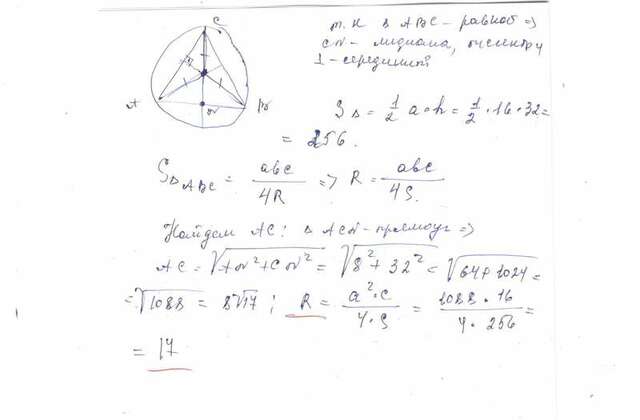 C
т. к Δ ABC - равноб =>
CN - медиана,
A N B
S Δ = 1/2 a • h = 1/2 • 16 • 32 =
= 256.
S Δ ABC = abc / 4R => R = abc / 4S.
Найдем AC: Δ ACN - прямоуг =>
AC = √AN² + CN² = √8² + 32² = √64 + 1024 =
= √1088 = 8√17 ; R = a² • c / 4 • S = 1088 • 16 / 4 • 256 =
= 17